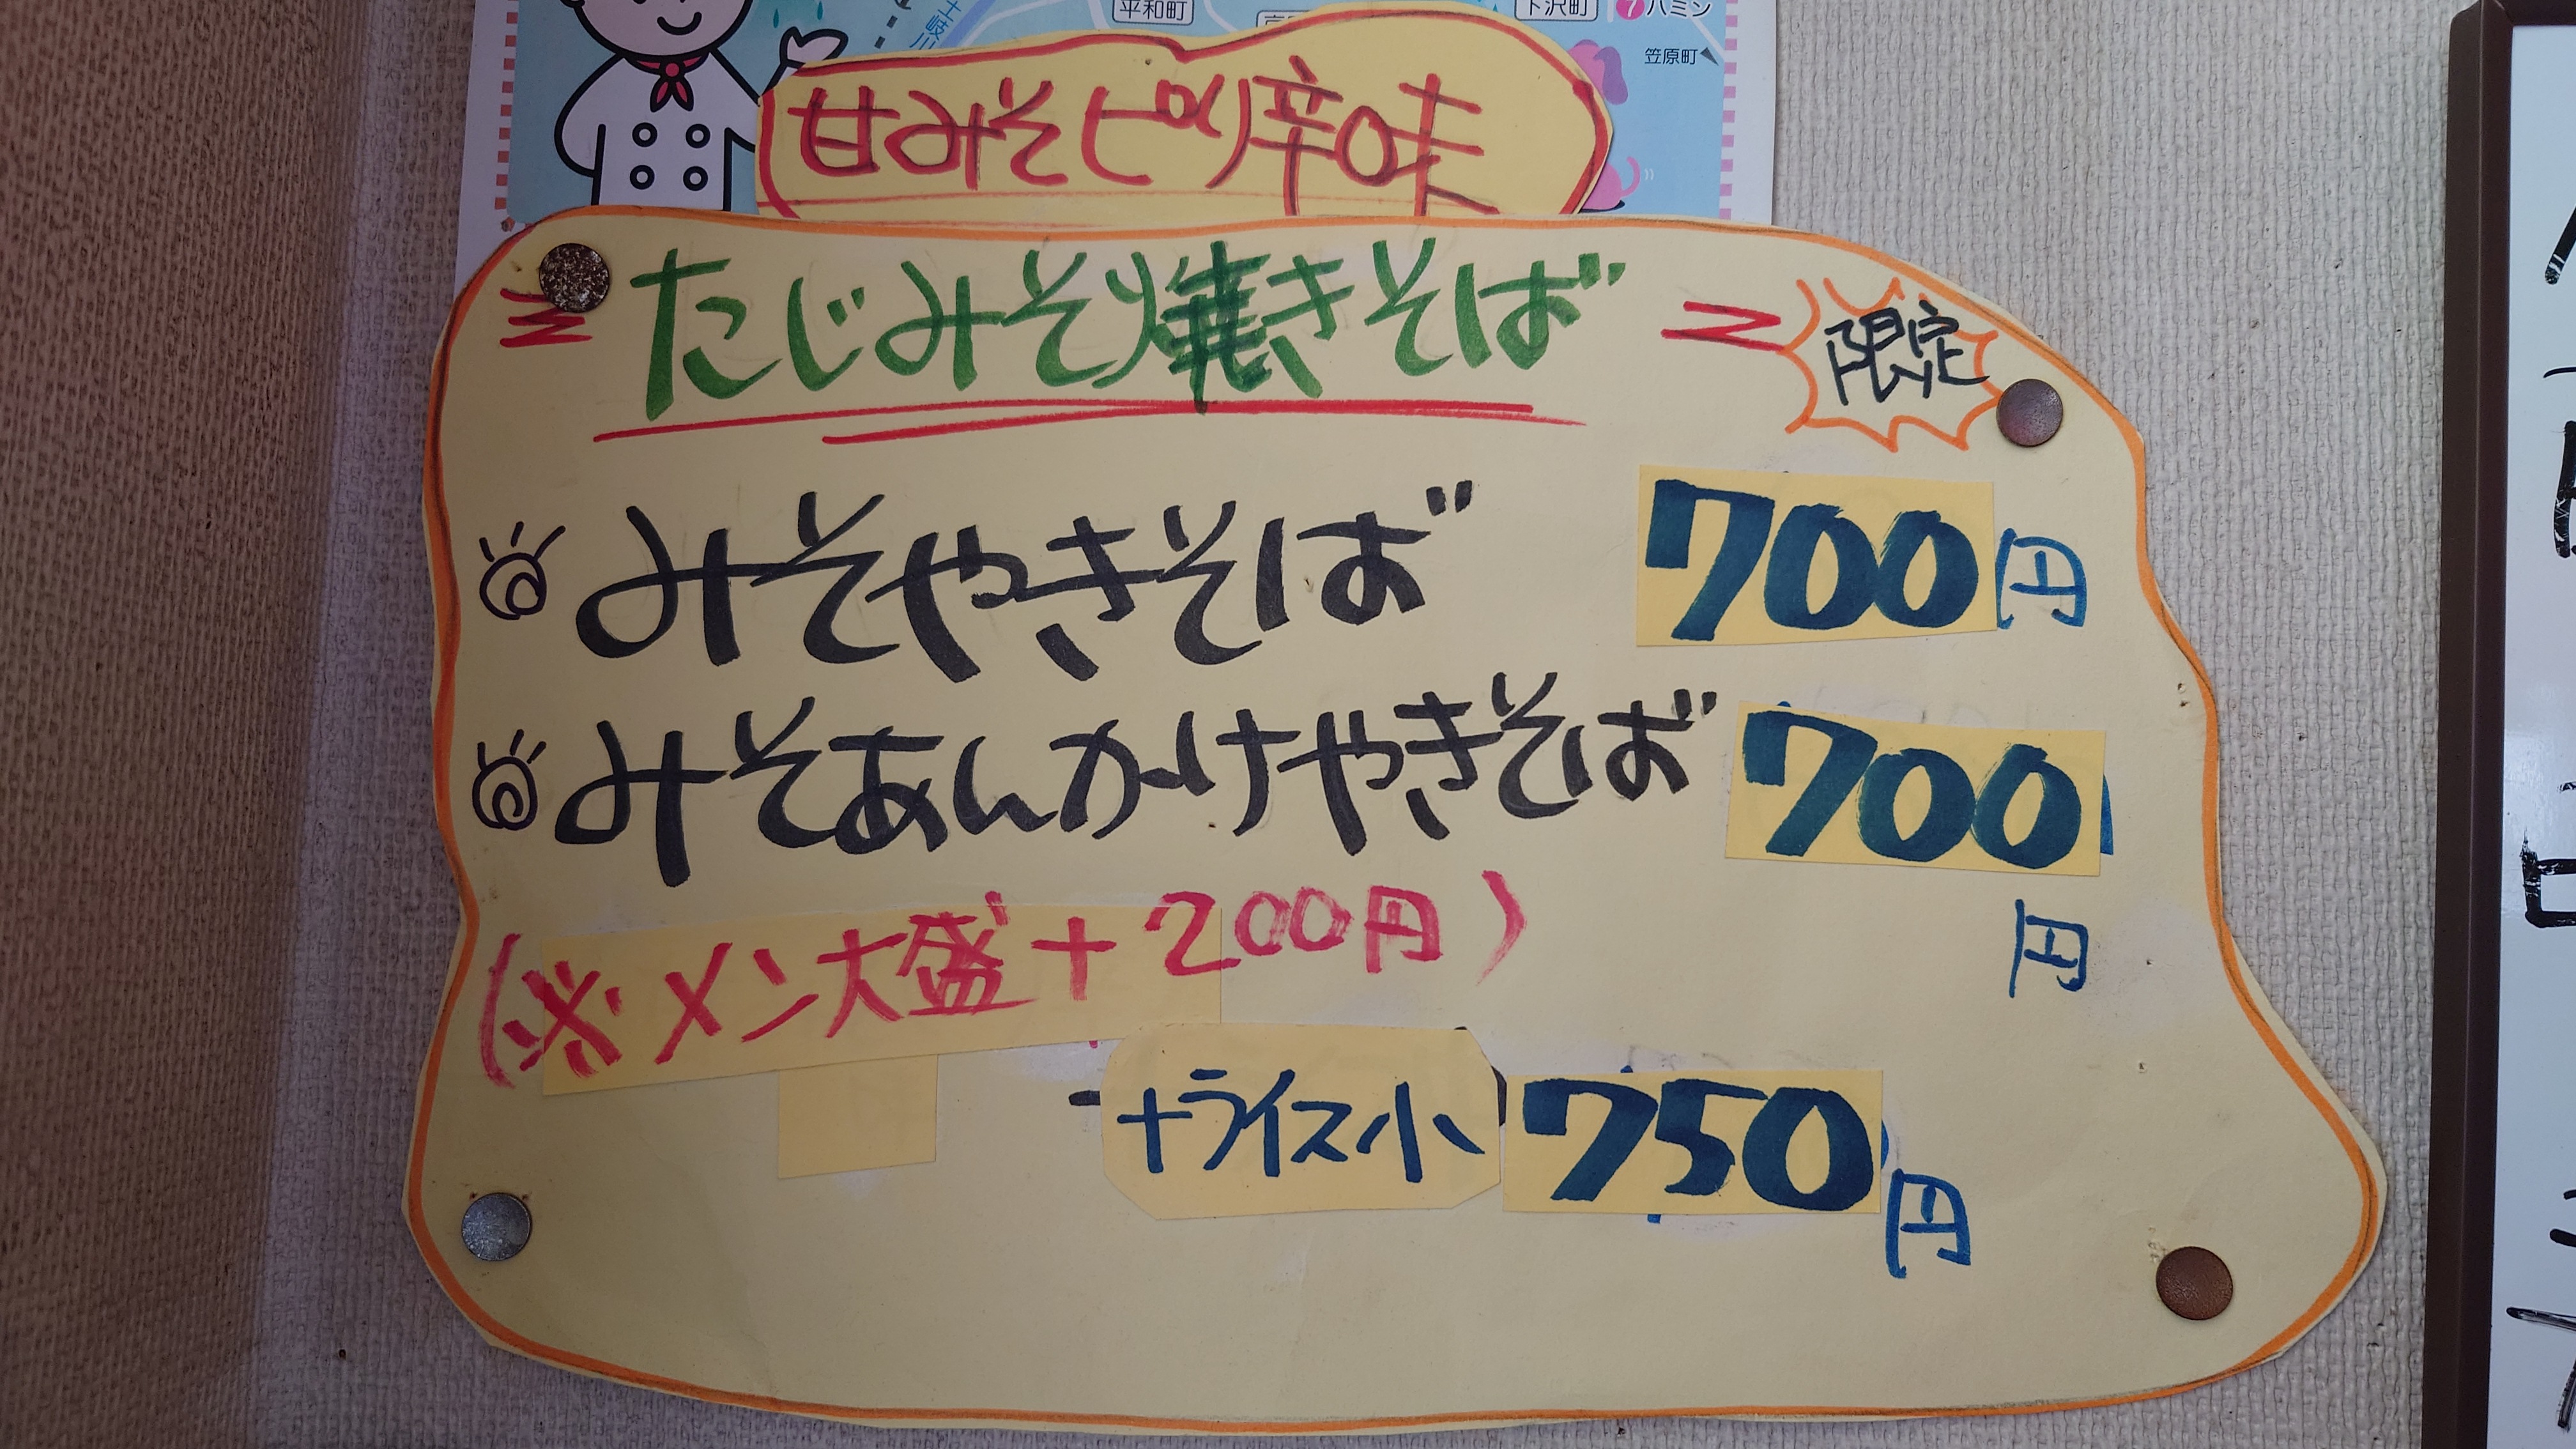 平和町
下沢町
笠原町
甘みそピリ辛味
たじみそ焼きそば
限定
みそやきそば 700円
みそあんかけやきそば 700円
(※メン大盛+200円)
+ライス小 750円